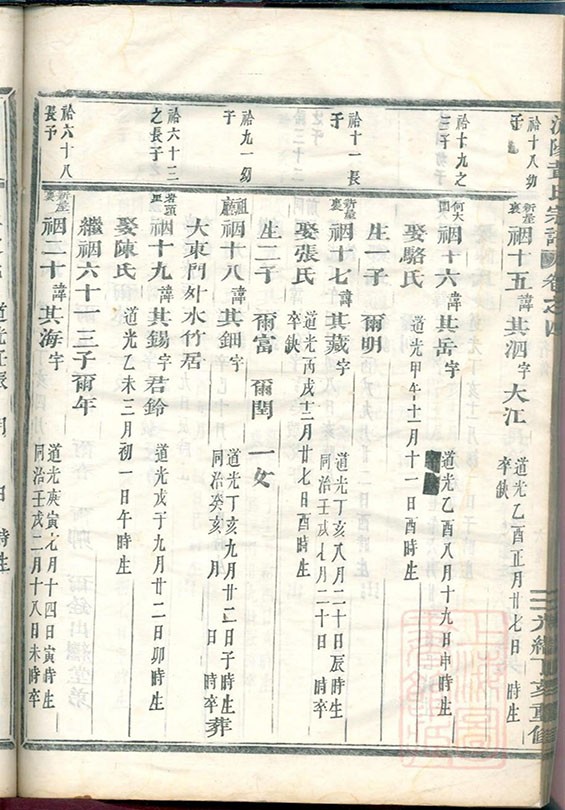 宗譜 卷之四
光緒丁亥重修
祫十八幼子
新屋裏
祻十五 諱其泗 字大江 道光乙酉正月廿七日 時生 卒缺
祫十九之三子
何大田
祻十六 諱其岳 字 道光乙酉八月十九日申時生
娶駱氏 道光甲午十一月十一日酉時生
生子 爾明
祫十一長子
新屋裏
祻十七 諱其藏 字 道光丁亥八月二十日辰時生 同治壬戌七月二十日 時卒
娶張氏 道光丙戌十二月廿七日酉時生 卒缺
生二子 爾富 爾閏 一女
祫九一幼子
祻十八 諱其鈿 字 道光丁亥九月廿二日子時生 同治癸亥 月 日 時卒 葬
大東門外水竹居
祫六十三之長子
祻十九 諱其錫 字君鈴 道光戊子九月廿二日卯時生
娶陳氏 道光乙未三月初一日午時生
繼祻六十三子爾年
祫六十八長子
新屋裏
祻二十 諱其海 字 道光庚寅七月十四日寅時生 同治壬戌二月十八日未時卒